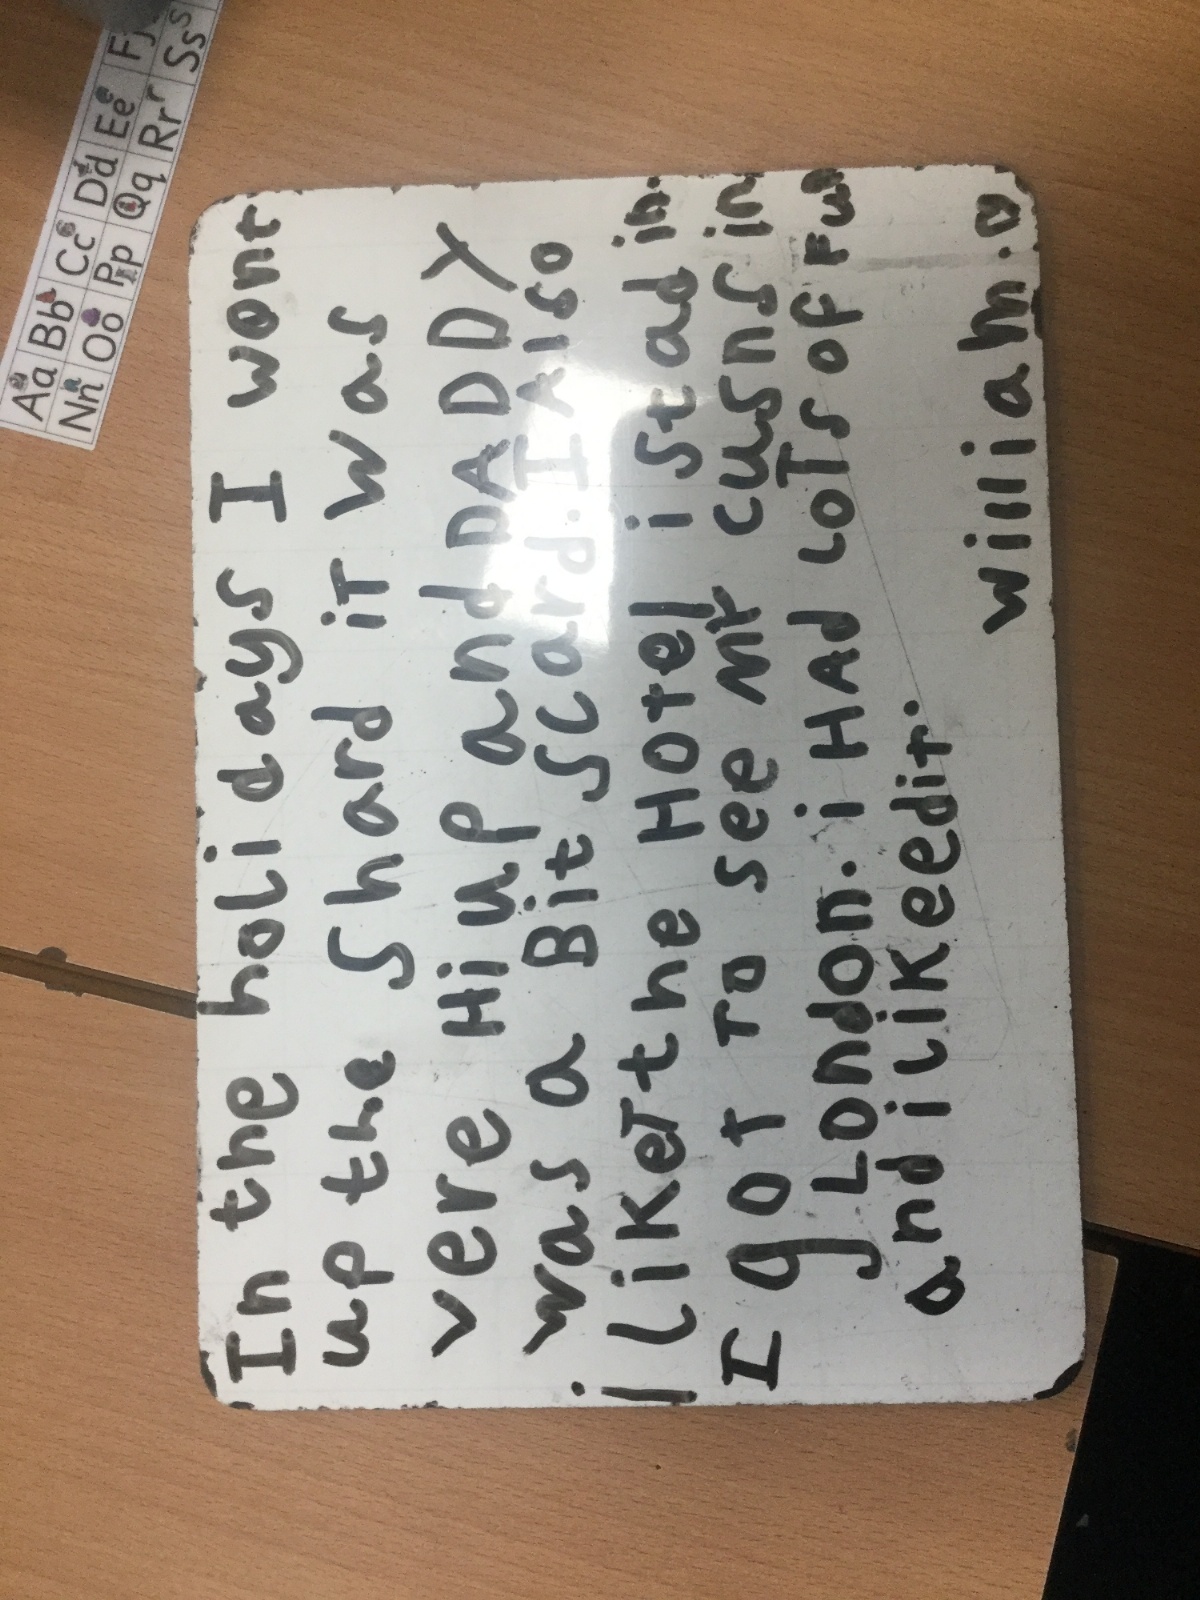 In the holidays I wont
up the Shard iT was
vere Hi up and DADDY
was a Bit Scard. I AlSo
i likeT the Hotel i Stad in.
I goT To see my cusns in
London. i HAd LoTs oF Fun
and i liKeedit.
william.o
Aa Bb Cc Dd Ee Ff
Nn Oo Pp Qq Rr Ss